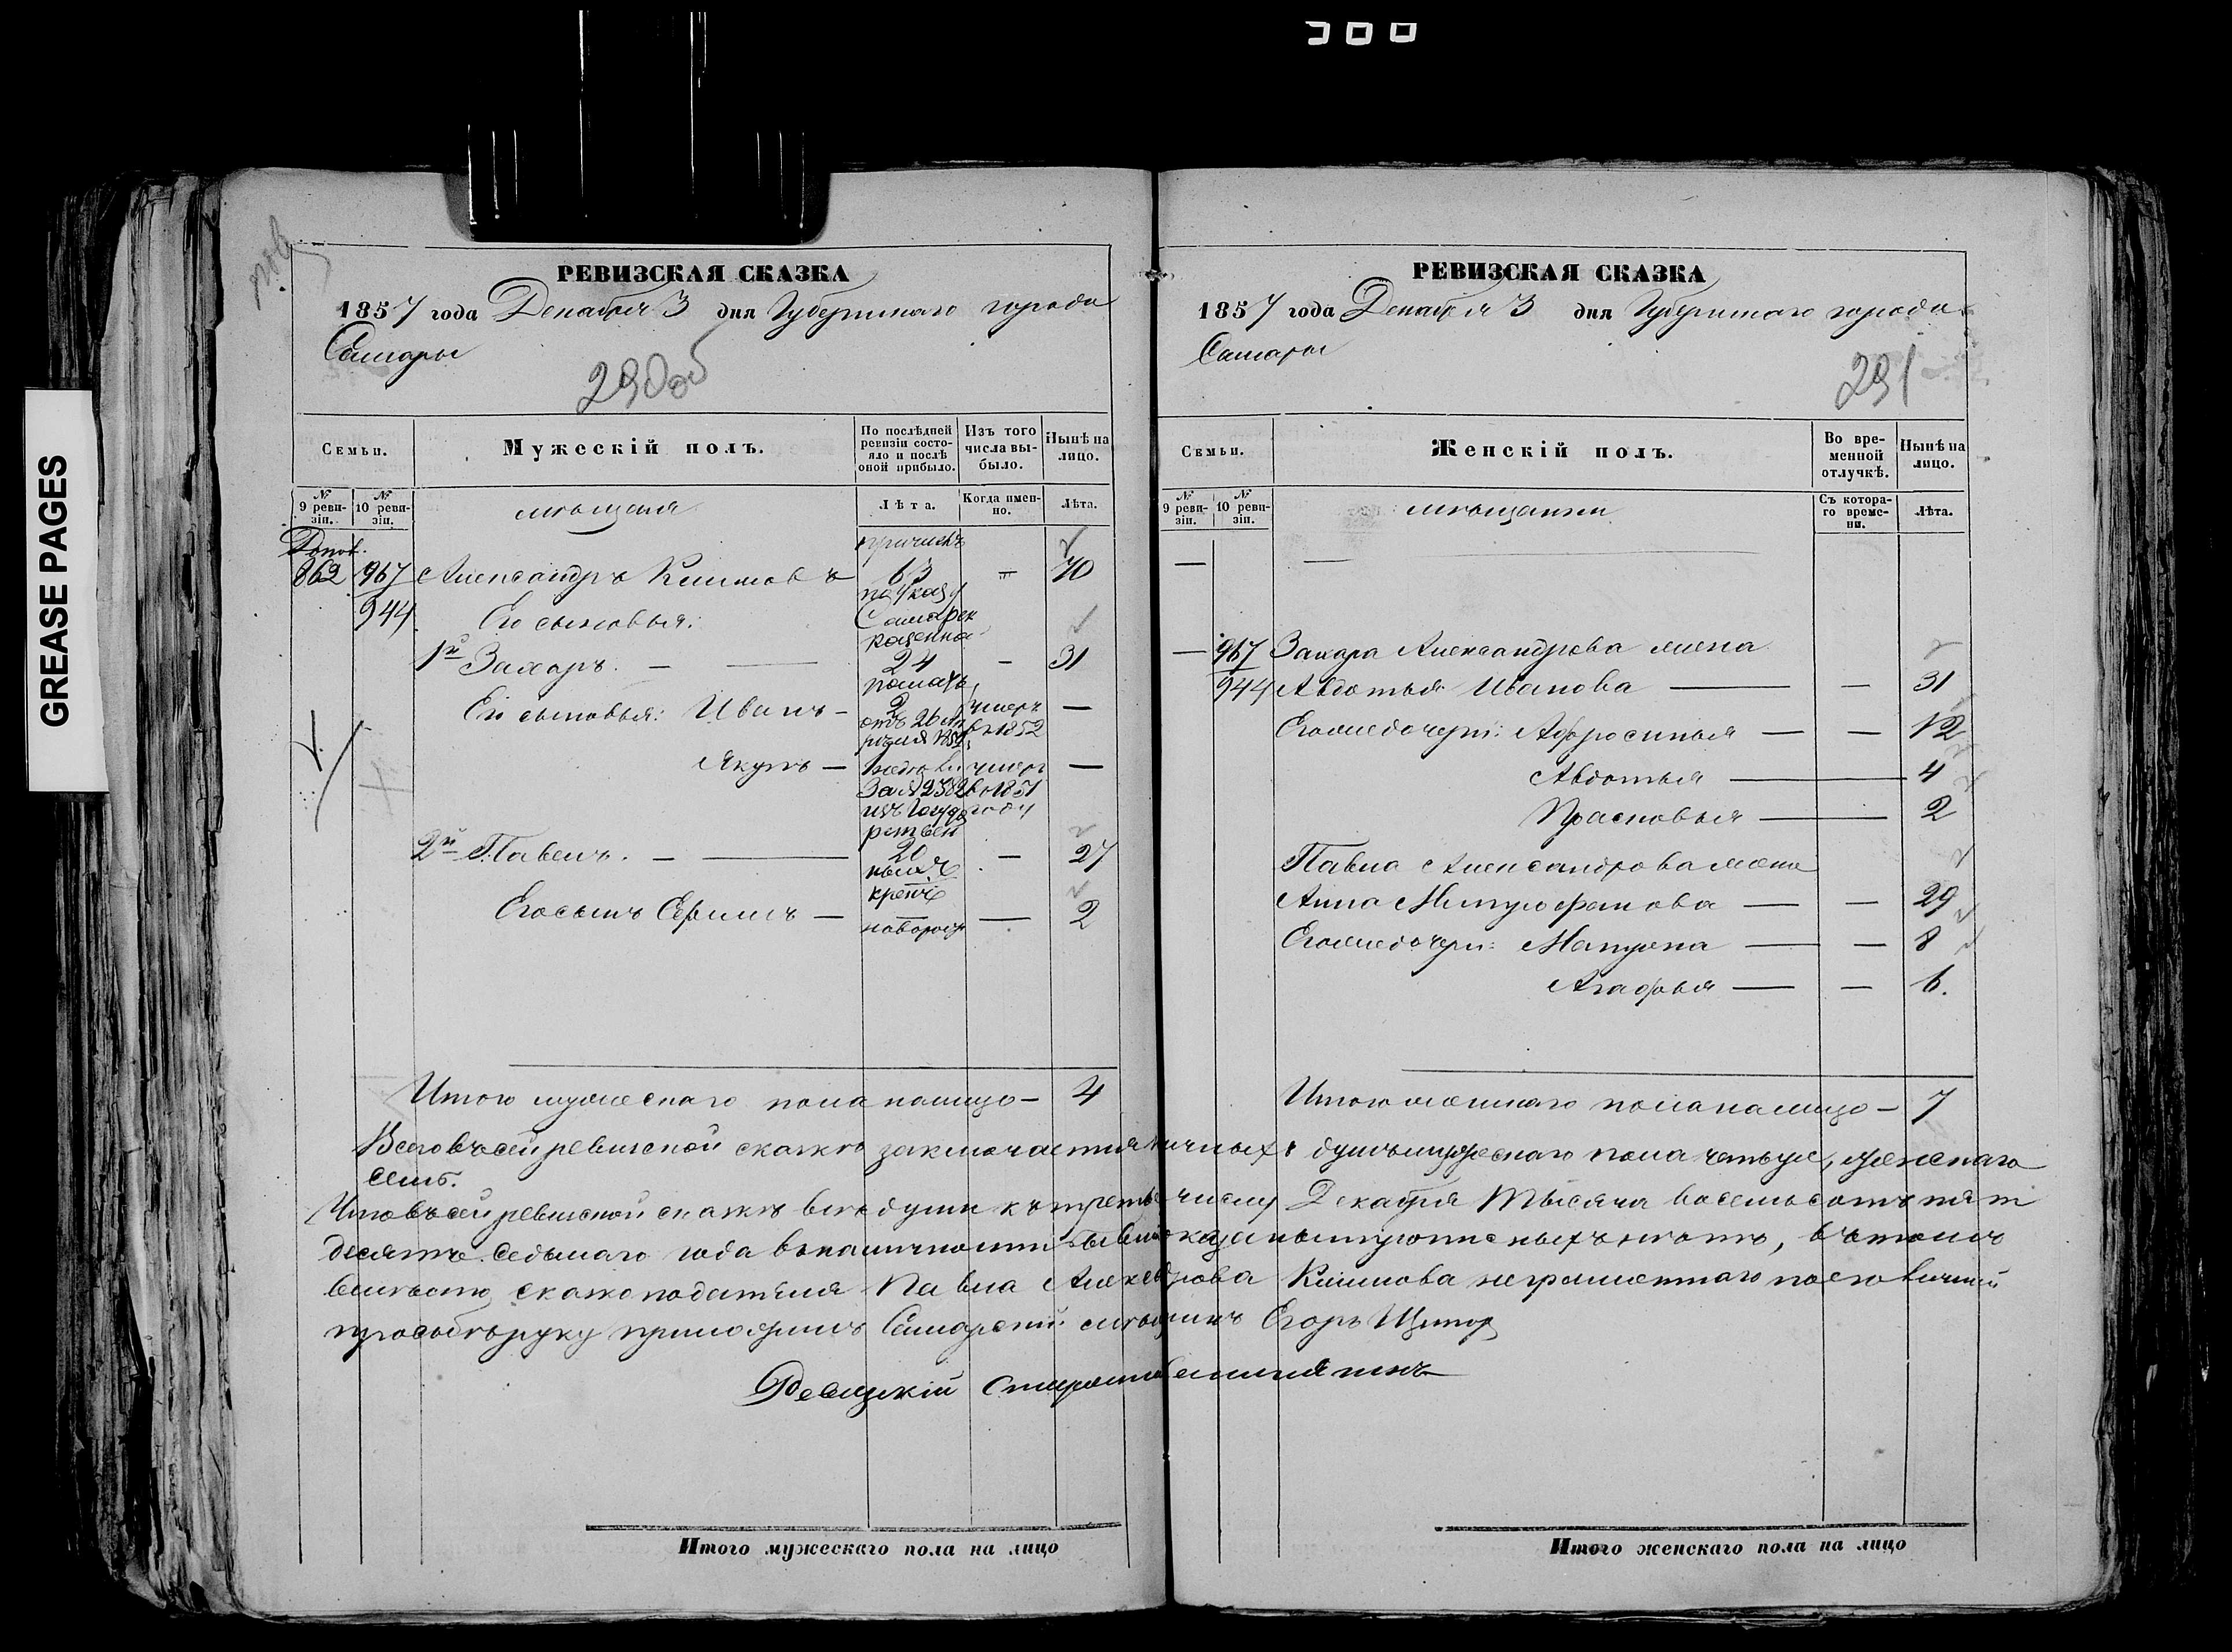 GREASE PAGES
РЕВИЗСКАЯ СКАЗКА
1857 года Декабря 3 дня Губернскаго города
Самары
290об
Семьи.
Мужескій полъ.
По послѣдней ревизіи состояло и послѣ оной прибыло.
Изъ того числа выбыло.
Нынѣ на лицо.
№ 9 ревизіи.
№ 10 ревизіи.
мѣщане
Лѣта.
Когда именно.
Лѣта.
Допол.
862 967 Александръ Климовъ 63 — 70
944 Его сыновья:
1й Захаръ. — 24 — 31
Его сыновья: Иванъ — 2 умеръ в 1852 —
Якумъ — умеръ в 1851 году —
2й Павелъ. — 20 — 27
Его сынъ Ефимъ — новорож — 2
причисл
по указу
Самарск
казенна
палаты
отъ 26 Ап
рѣля 1852
За № 2582
изъ Госуда
рствен
ныхъ
крест
Итого мужескаго пола налицо — 4
РЕВИЗСКАЯ СКАЗКА
1857 года Декабря 3 дня Губернскаго города
Самары
291
Семьи.
Женскій полъ.
Во временной отлучкѣ.
Нынѣ на лицо.
№ 9 ревизіи.
№ 10 ревизіи.
мѣщанки
Съ котораго времени.
Лѣта.
— 967 Захара Александрова жена
944 Авдотья Иванова — — 31
Его же дочери: Афросинья — — 12
Авдотья — 4
Прасковья — 2
Павла Александрова жена
Анна Митрофанова — — 29
Его же дочери: Матрена — — 8
Агафья — — 6.
Итого женскаго пола налицо — 7
Всего въ сей ревизской сказкѣ заключается личныхъ душъ мужескаго пола четыре, женскаго
семь.
Что въ сей ревизской сказкѣ всѣ души къ третьему числу Декабря Тысяча восемьсотъ пять
десятъ седьмаго года въ наличности бывшія показаны и прописныхъ нѣтъ, въ томъ
вмѣсто сказкоподателя Павла Александрова Климова неграмотнаго по его личной
прозьбѣ руку приложилъ Самарскій мѣщанинъ Егоръ
Итого мужескаго пола на лицо
Итого женскаго пола на лицо